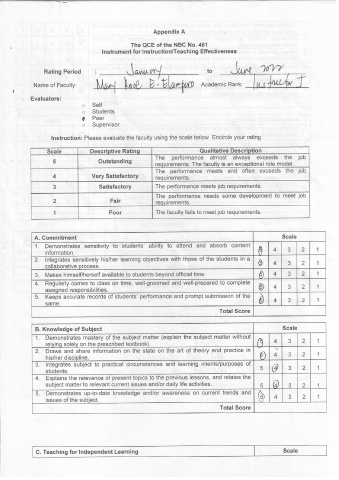 Appendix A
The QCE of the NBC No. 461
Instrument for Instruction/Teaching Effectiveness
Rating Period : January to June 2022
Name of Faculty: Mary Rose E. Academic Rank: Instructor I
Evaluators:
Self
Students
Peer
Supervisor
Instruction: Please evaluate the faculty using the scale below. Encircle your rating.
Scale Descriptive Rating Qualitative Description
5 Outstanding The performance almost always exceeds the job requirements. The faculty is an exceptional role model
4 Very Satisfactory The performance meets and often exceeds the job requirements.
3 Satisfactory The performance meets job requirements.
2 Fair The performance needs some development to meet job requirements.
1 Poor The faculty fails to meet job requirements.
A. Commitment Scale
1. Demonstrates sensitivity to students' ability to attend and absorb content information. 5 4 3 2 1
2. Integrates sensitively his/her learning objectives with those of the students in a collaborative process. 5 4 3 2 1
3. Makes himself/herself available to students beyond official time. 5 4 3 2 1
4. Regularly comes to class on time, well-groomed and well-prepared to complete assigned responsibilities. 5 4 3 2 1
5. Keeps accurate records of students' performance and prompt submission of the same. 5 4 3 2 1
Total Score
B. Knowledge of Subject Scale
1. Demonstrates mastery of the subject matter (explain the subject matter without relying solely on the prescribed textbook). 5 4 3 2 1
2. Draws and share information on the state on the art of theory and practice in his/her discipline. 5 4 3 2 1
3. Integrates subject to practical circumstances and learning intents/purposes of students. 5 4 3 2 1
4. Explains the relevance of present topics to the previous lessons, and relates the subject matter to relevant current issues and/or daily life activities. 5 4 3 2 1
5. Demonstrates up-to-date knowledge and/or awareness on current trends and issues of the subject. 5 4 3 2 1
Total Score
C. Teaching for Independent Learning Scale